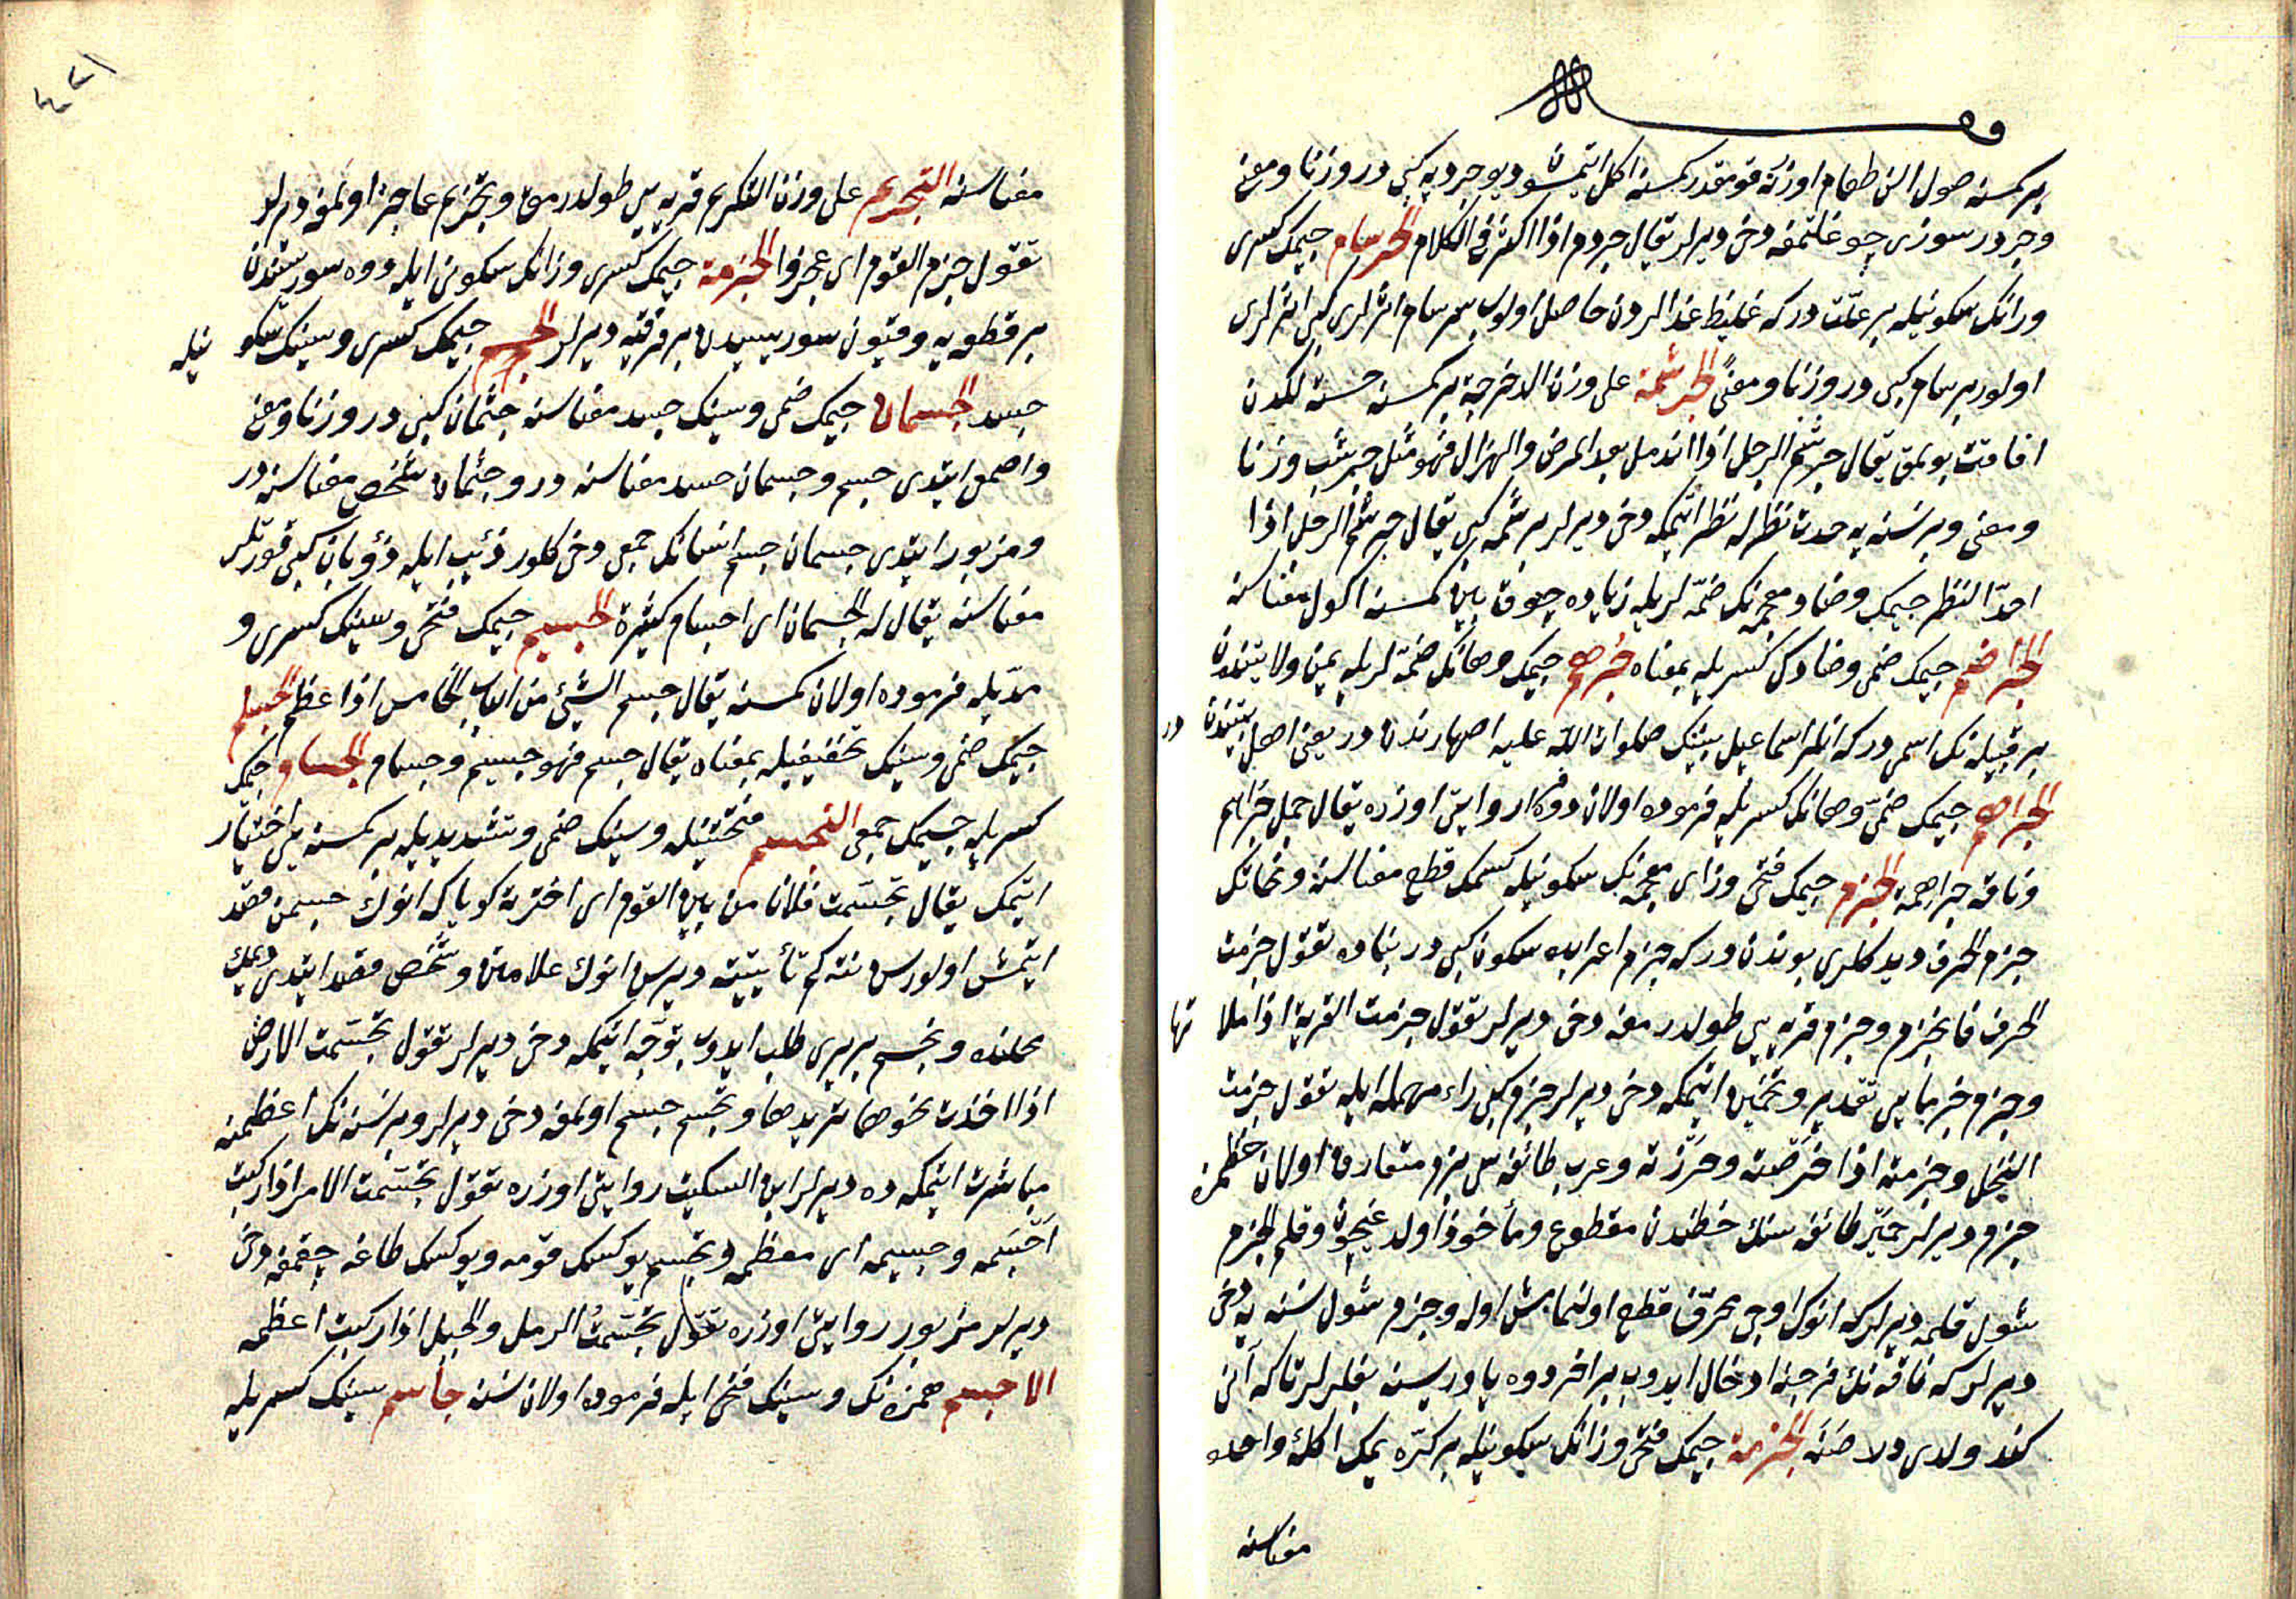 وقف
بر كمسنه صول الن طعام اوزرنه قومقدر كمسنه اكل ايتمسون ديو جردبه كبى در وزنا ومعنى
وجردم سوزى چوغلتمغه دخى ديرلر يقال جردم اذا اكثر فى الكلام الجرسام جيمك كسرى
ورانك سكونيله بر علّتدر كه غليظ غذالردن حاصل اولوب سرسام اثرلرى كبى اثرلرى
اولور برسام كبى در وزنا ومعنًى الجرشمة على وزن الدحرجة بر كمسنه خسته لكدن
افاقت بولمق يقال جرشم الرجل اذا اندمل بعد المرض والهزال فهو مثل جرشب وزنا
ومعنى وبر نسنه يه حدت نظرله نظر ايتمكه دخى ديرلر برشمه كبى يقال جرشم الرجل اذا
احدّ النظر جيمك وضاد معجمه نك ضمّه لريله زياده چوق يين كمسنه اكول معناسنه
الجراضم جيمك ضمى وضادك كسريله بمعناه جرهم جيمك وهانك ضمه لريله يمن ولايتندن
بر قبيله نك اسمى در كه انلر اسماعيل نبينك صلوات الله عليه اصهارندن در يعنى اهل بيتندن در
الجراهم جيمك ضمّى وهانك كسريله فرموده اولان دوه ار روايتى اوزره يقال جمل جراهم
وناقه جراهمه الجزم جيمك فتحى وزاى معجمه نك سكونيله كسمك قطع معناسنه ونحاتك
جزم الحرف ديدكلرى بوندن در كه جزم اعرابده سكون كبى در بناده تقول جزمت
الحرف فانجزم وجزم قربه يى طولدرمغه دخى ديرلر تقول جزمت القربة اذا ملاتها
وجزم خرمايى تقدير وتخمين ايتمكه دخى ديرلر جزم كبى راء مهمله ايله تقول جزمت
النخل وجزمته اذا خرصته وحزرته وعرب طائفه سى بزم متعارف اولان خطمزه
جزم ديرلر حمير طائفه سنك خطندن مقطوع ومأخوذ اولدغيچون وقلم الجزم
شول قلمه ديرلر كه انوك اوجى محرّف قطع اولنمامش اوله وجزم شول نسنه يه دخى
ديرلر كه ناقه نك فرجنه ادخال ايدوب بر اخر دوه ياوريسنه بغلرلر تاكه انى
كند ولدى دلاصنه الجزمة جيمك فتحى وزانك سكونيله بر كره يمك اكلة واحده
معناسنه
٤٢١
معناسنه التجزيم على وزن التكريم قربه يى طولدرمق وتجزيم عاجز اولمغه ديرلر
تقول جزم القوم اى عجزوا الجزمة جيمك كسرى وزانك سكونى ايله دوه سوريسندن
بر قطعه يه وقيون سوريسيدن بر فرقه يه ديرلر الجسم جيمك كسرى وسينك سكونيله
جسد الجسمان جيمك ضمى وسينك جسد معناسنه جثمان كبى در وزنا ومعنى
واصمعى ايتدى جسم وجسمان جسد معناسنه در وجثمان شخص معناسنه در
ومزبور ايتدى جسمان جسم انسانك جمعى دخى كلور ذئب ايله ذؤبان كبى قورتلر
معناسنه يقال له الجسمان اى اجسام كثيرة الجسيم جيمك فتحى وسينك كسرى و
مدّيله فرموده اولان كمسنه يقال جسم الشئ من الباب الخامس اذا عظم الجسام
جيمك ضمى وسينك تخفيفيله بمعناه يقال جسم فهو جسيم وجسام الجسام جيمك
كسريله جسيمك جمعى التجسم فتحتينله وسينك ضمى وتشديديله بر كمسنه يى اختيار
ايتمك يقال تجسّمت فلانا من بين القوم اى اخترته كويا كه انوك جسمن قصد
ايتمش اولورسن نته كم تأييته ديرسن انوك علامتن وشخصن قصد ايتدى ديمك
محلنده وتجسم بر يرى طلب ايدوب توجّه ايتمكه دخى ديرلر تقول تجسّمت الارض
اذا اخذت نحوها تريدها وتجسم جسم اولمغه دخى ديرلر وبر نسنه نك اعظمنه
مباشرت ايتمكه ده ديرلر ابن السكيت روايتى اوزره تقول تجسّمت الامر اذا ركبت
اجسمه وجسيمه اى معظمه وتجسم يوكسك قومه ويوكسك طاغه چقمغه دخى
ديرلر مزبور روايتى اوزره تقول تجسّمتُ الرمل والجبل اذا ركبت اعظمه
الاجسم همزه نك وسينك فتحى ايله فرموده اولان نسنه جاسم سينك كسريله